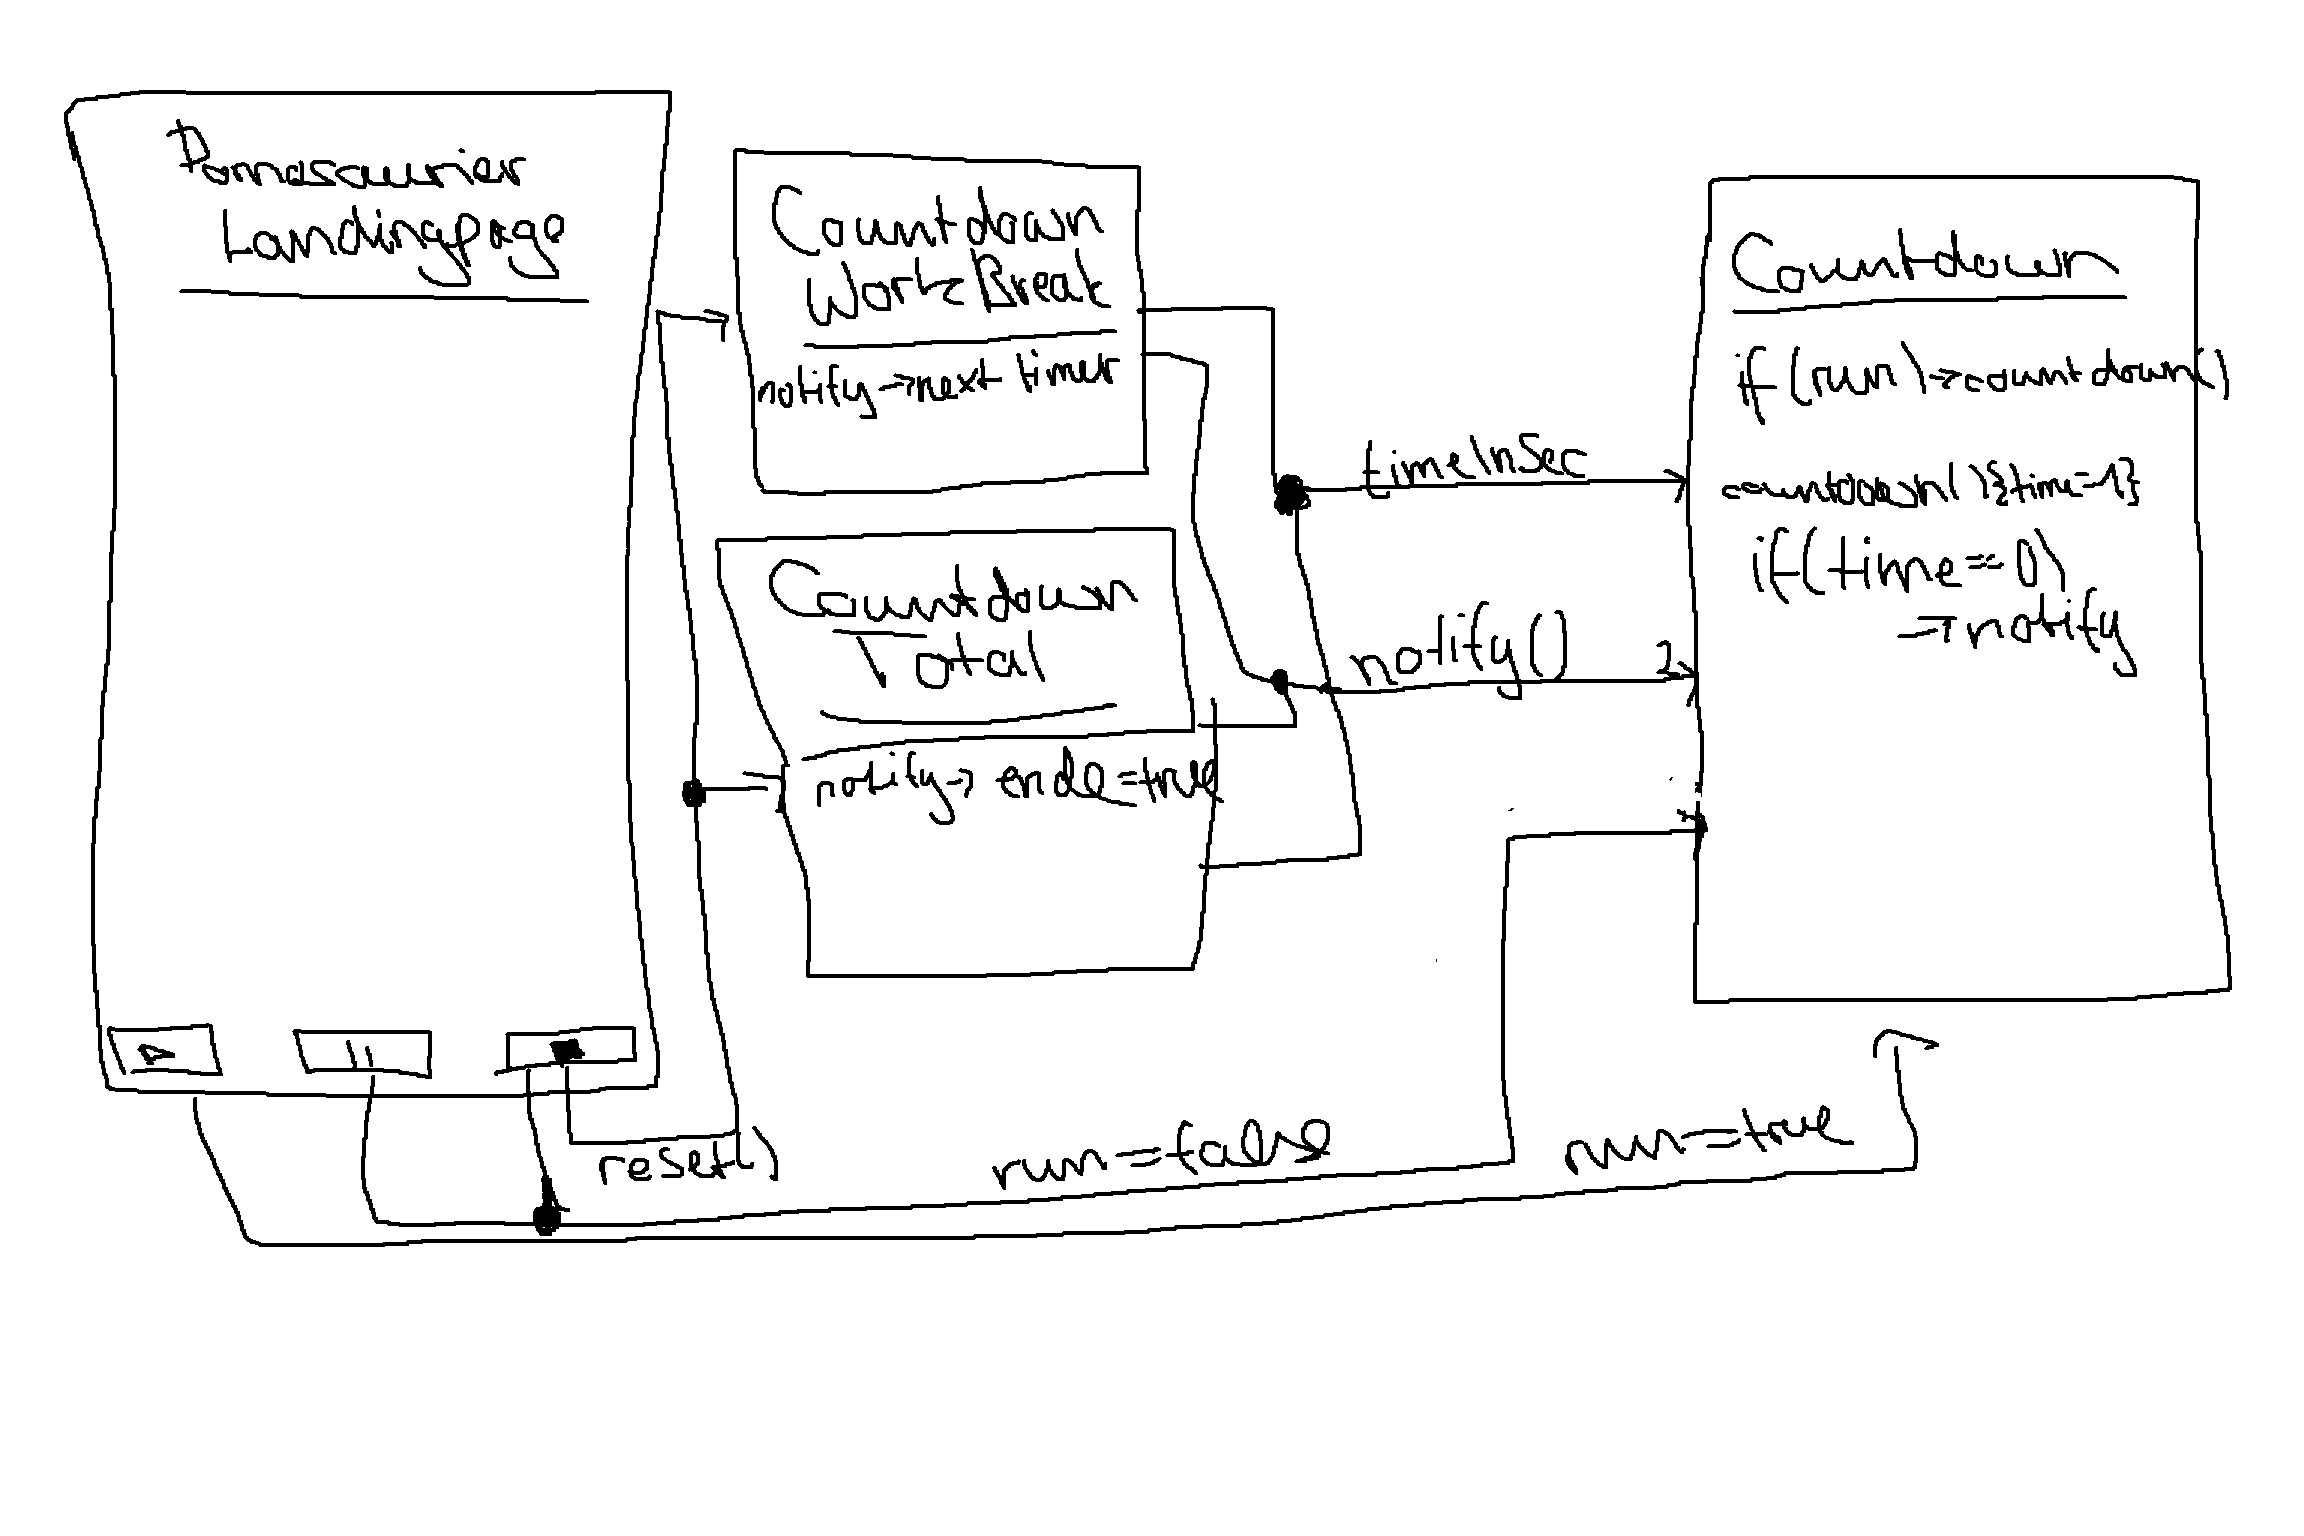 Pomasaurier
Landingpage
Countdown
WorkBreak
notify→next timer
Countdown
Total
notify→ ende=true
timeInSec
notify()
Countdown
if (run)→countdown()
countdown(){time-1}
if(time==0)
→notify
reset()
run=false
run=true